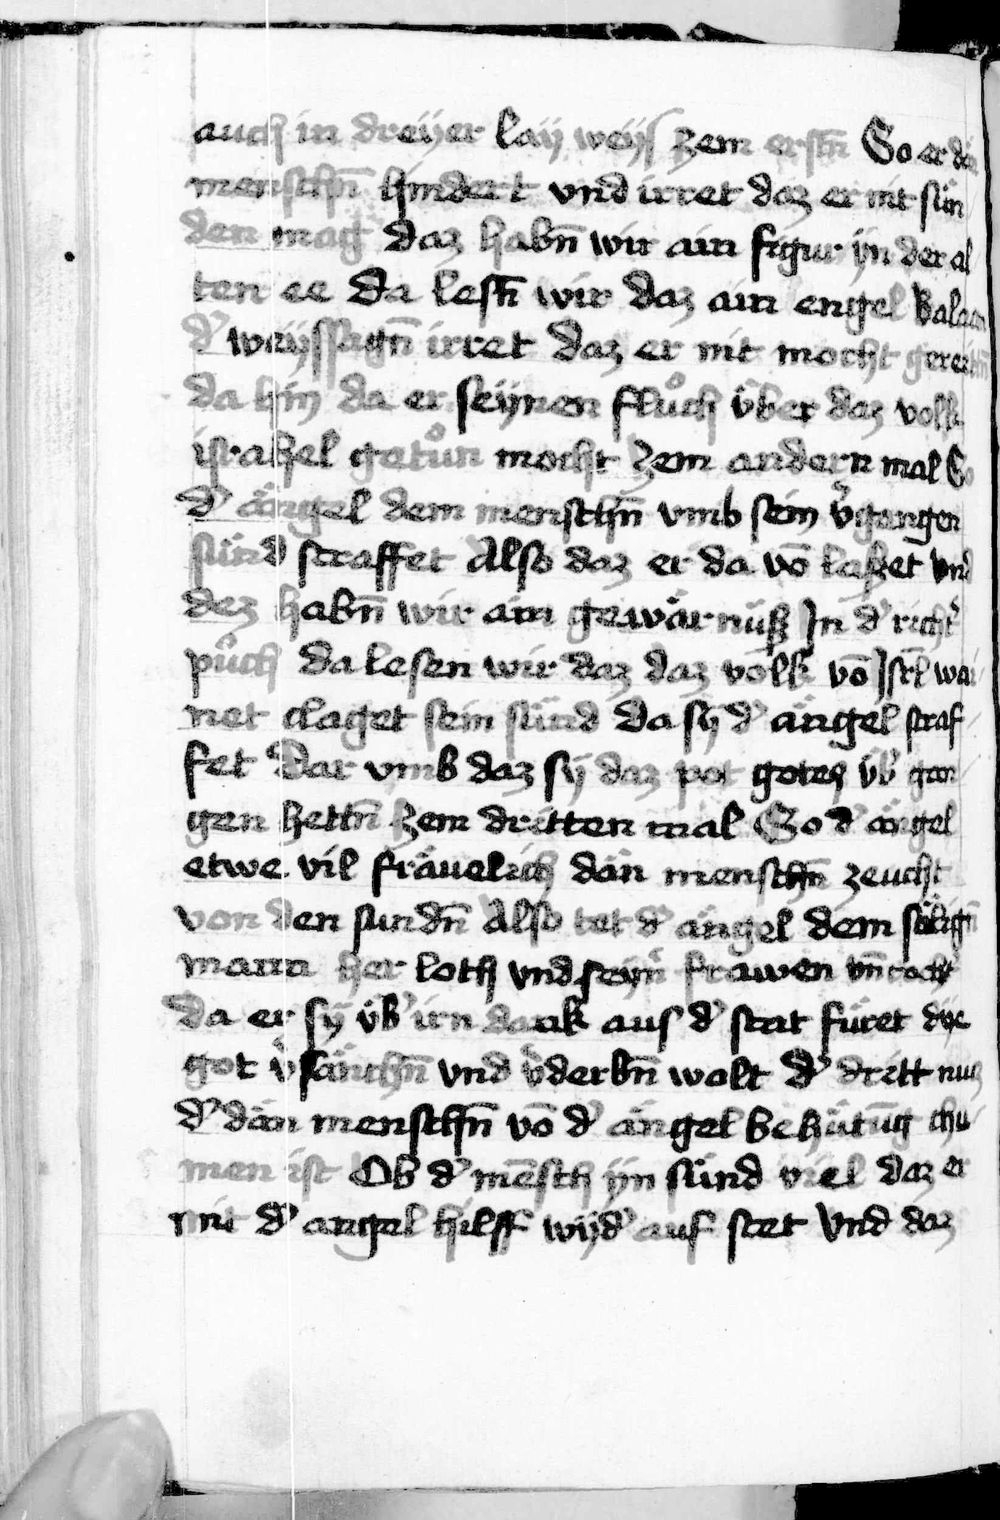 auch in dreÿer laÿ weÿs zem erstn̄ So er dän
menschn̄ hindert vnd irret daz er nit sün
den mag daz habn̄ wir ain figur ÿn der al
ten ee da lesn̄ wir daz ain engel Balaam
d' weÿssagn̄ irret daz er nit mocht gereittn̄
da hin da er seÿnen fluͦch v̈ber daz volk
israhel getuͦn mocht zem andern mal So
d' ängel dem menschn̄ vmb sein v'gangen
sünd straffet Also daz er da vō laszet vnd
dez habn̄ wir ain gewärnüsz In d' richt'
puͦch da lesen wir daz daz volk vō Isrl̄ wai
net claget sein sünd da sÿ d' ängel straf
fet dar vmb daz sÿ daz pot gotes v̈b' gan
gen hettn̄ zem dritten mal So d' ängel
etwe vil fräuelich dän menschn̄ zeucht
von den sundn̄ Also tet d' ängel dem sälign̄
mann her loth vnd seÿn' frawen vn̄ tocht'
da er sÿ v̈b' irn dank aus d' stat füret dÿe
got v'sänchn̄ vnd v'derbn̄ wolt d' dritt nucz
d' dän menschn̄ vō d' ängel behütūg chu
men ist Ob d' mēsch ÿn sünd viel daz er
mit d' angel hilff wÿd' auf stet vnd daz